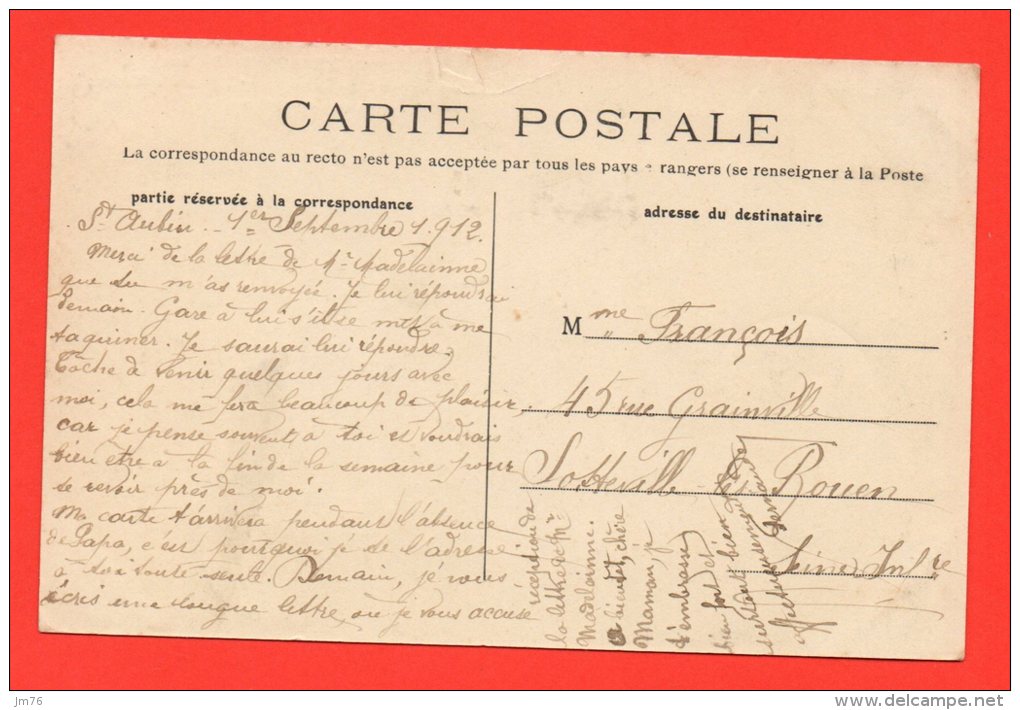 CARTE POSTALE
La correspondance au recto n'est pas acceptée par tous les pays rangers (se renseigner à la Poste
partie réservée à la correspondance
adresse du destinataire
St Aubin - 1er Septembre 1912.
Merci de la lettre de Mr Madelainne
que tu m'as renvoyée. Je lui répondrai
demain. Gare à lui s'il se met à me
taquiner. Je saurai lui répondre.
Tâche de venir quelques jours avec
moi, cela me fera beaucoup de plaisir,
car je pense souvent à toi et voudrais
bien être à la fin de la semaine pour
te revoir près de moi.
Ma carte t'arrivera pendant l'absence
de Papa, c'est pourquoi je te l'adresse
à toi toute seule. Demain, je vous
écris une longue lettre, où je vous accuse
réception de
la lettre de Mr
Madelainne.
A bientôt, chère
Maman, je
t'embrasse
bien fort et
surtout bien
Mme François
45 rue Grainville
Sotteville-lès-Rouen
Seine Infre
jm76
www.delcampe.net